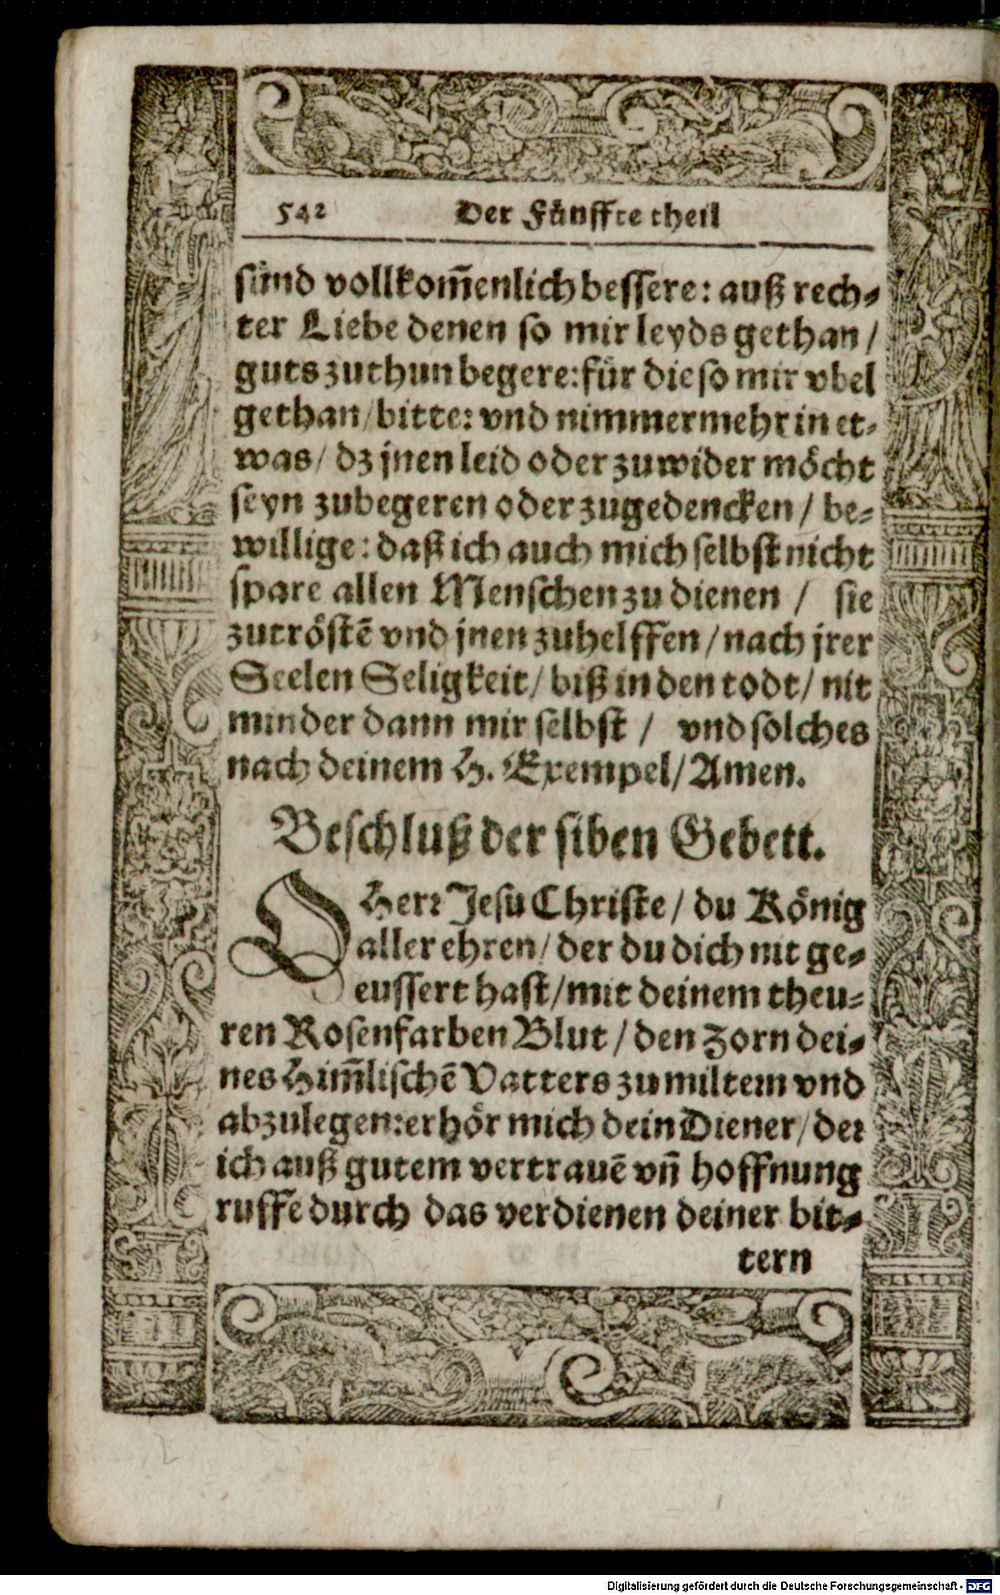 542 Der Fünffte theil
sünd vollkom̃enlich bessere: auß rech-
ter Liebe denen so mir leyds gethan /
guts zuthun begere: für die so mir vbel
gethan / bitte: vnd nimmermehr in et-
was / dz jnen leid oder zuwider möcht
seyn zubegeren oder zugedencken / be-
willige: daß ich auch mich selbst nicht
spare allen Menschen zu dienen / sie
zutröstẽ vnd jnen zuhelffen / nach jrer
Seelen Seligkeit / biß in den todt / nit
minder dann mir selbst / vnd solches
nach deinem H. Exempel / Amen.
Beschluß der siben Gebett.
O Herr Jesu Christe / du König
aller ehren / der du dich nit ge-
eussert hast / mit deinem theu-
ren Rosenfarben Blut / den Zorn dei-
nes Him̃lischẽ Vatters zu miltern vnd
abzulegen: erhör mich dein Diener / der
ich auß gutem vertrauẽ vñ hoffnung
ruffe durch das verdienen deiner bit-
tern
Digitalisierung gefördert durch die Deutsche Forschungsgemeinschaft - DFG